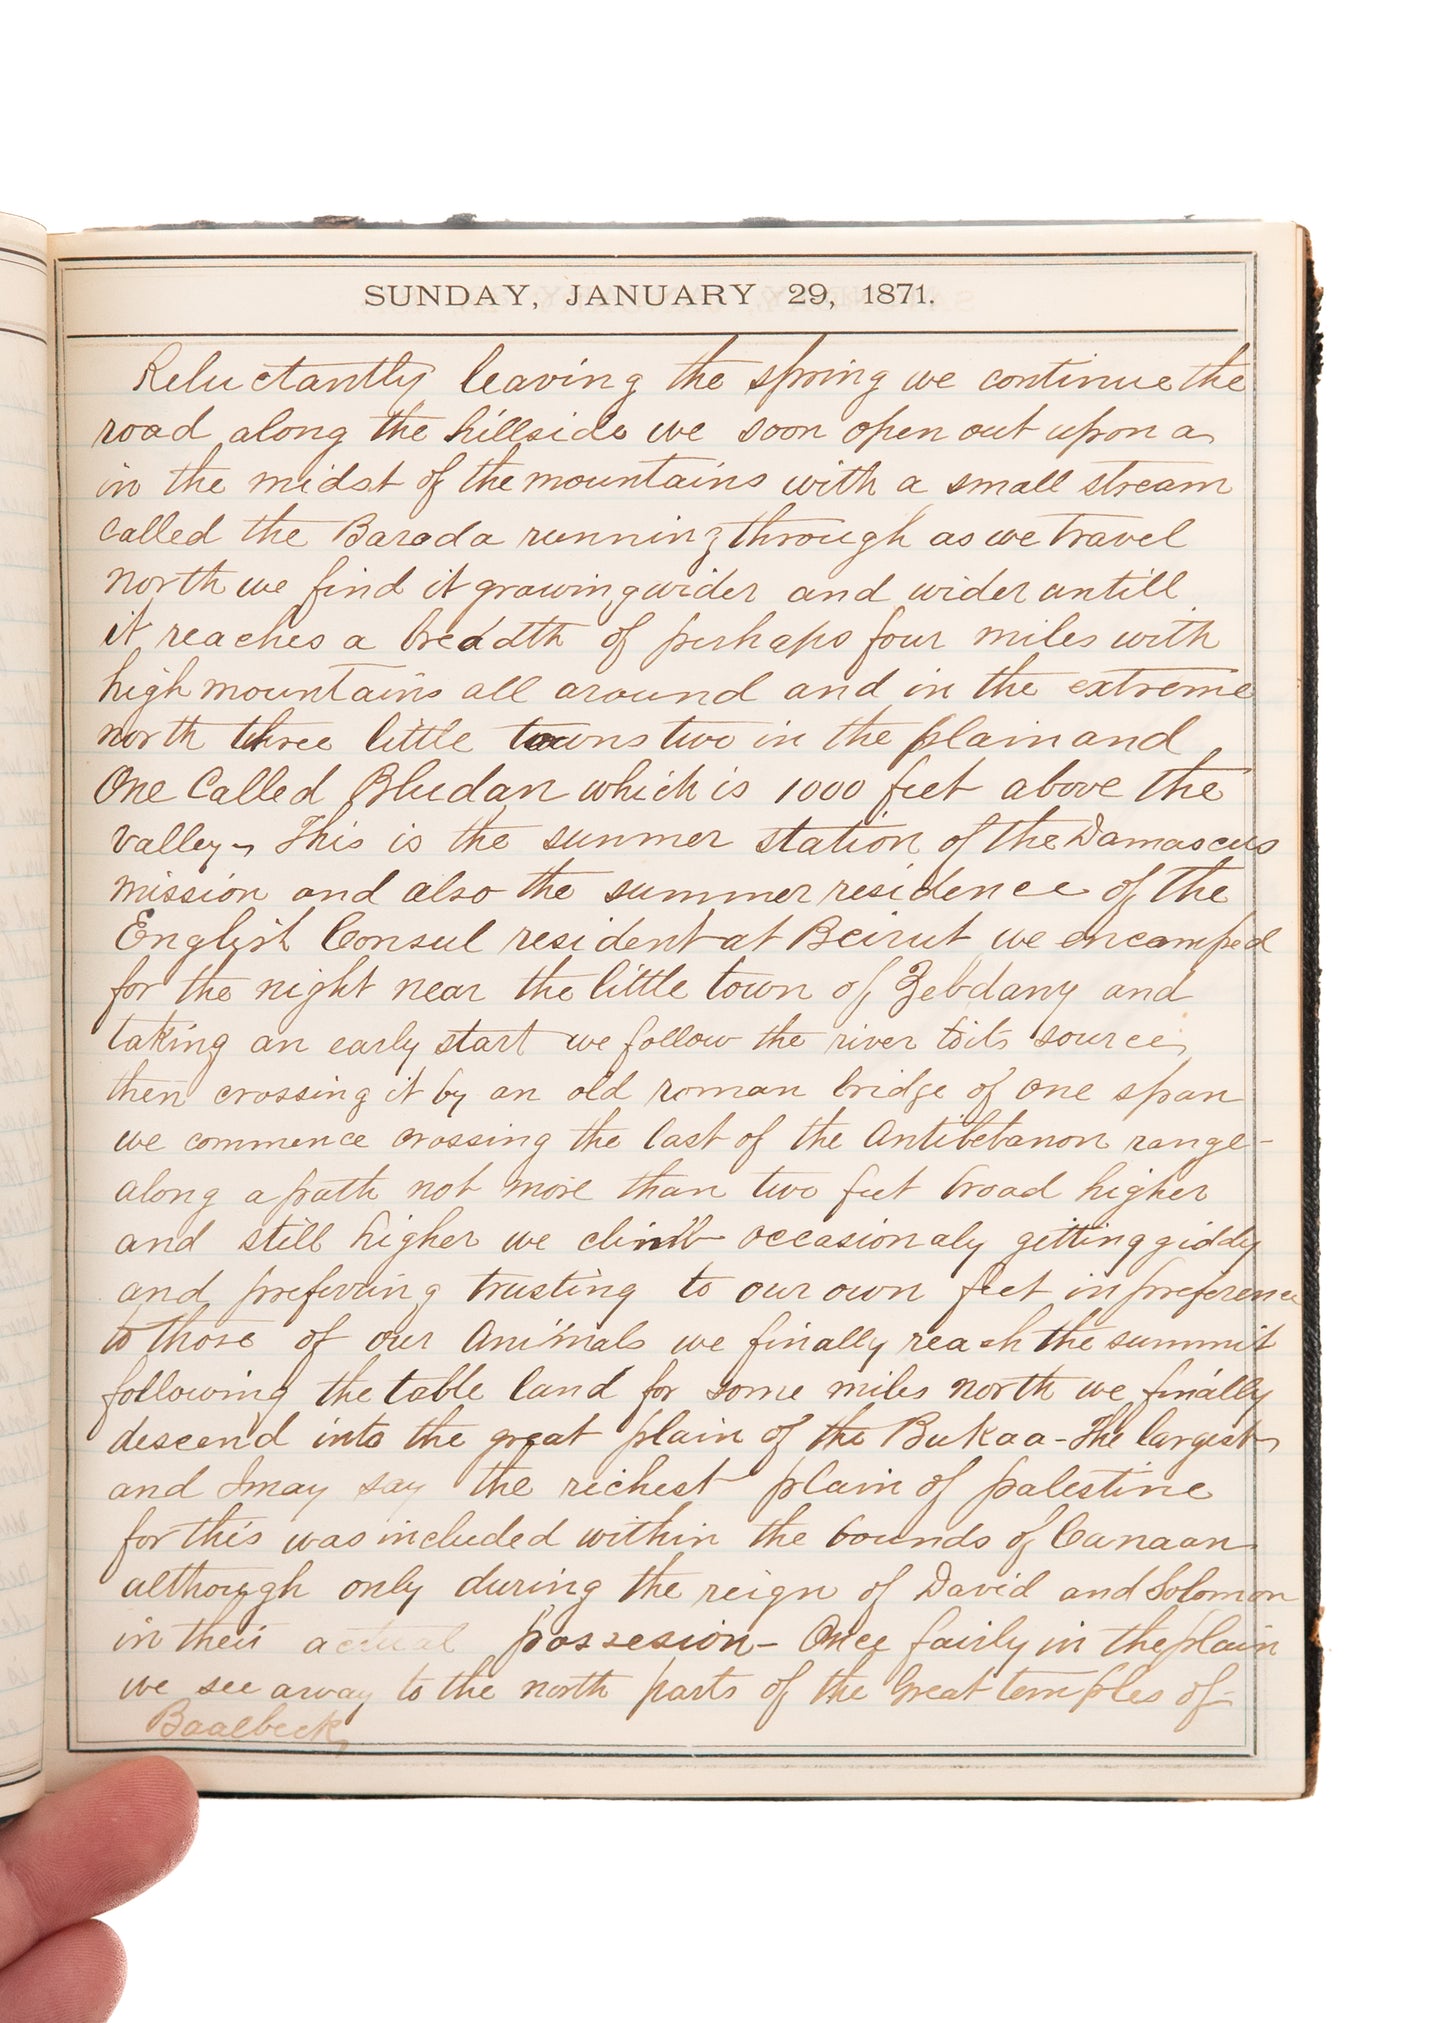 SUNDAY, JANUARY 29, 1871.
Reluctantly leaving the spring we continue the
road along the hillside we soon open out upon a
in the midst of the mountains with a small stream
called the Barada running through as we travel
north we find it growing wider and wider untill
it reaches a breadth of perhaps four miles with
high mountains all around and in the extreme
north three little towns two in the plain and
One Called Bludan which is 1000 feet above the
valley - This is the summer station of the Damascus
mission and also the summer residence of the
English Consul resident at Beirut we encamped
for the night near the little town of Zebdany and
taking an early start we follow the river to its source
then crossing it by an old roman bridge of one span
we commence crossing the last of the Antilebanon range -
along a path not more than two feet broad higher
and still higher we climb occasionaly getting giddy
and prefering trusting to our own feet in preference
to those of our Animals we finally reach the summit
following the table land for some miles north we finally
descend into the great plain of the Bukaa - The largest
and I may say the richest plain of palestine
for this was included within the bounds of Canaan
although only during the reign of David and Solomon
in their actual possesion - Once fairly in the plain
we see away to the north parts of the Great temples of
Baalbeck